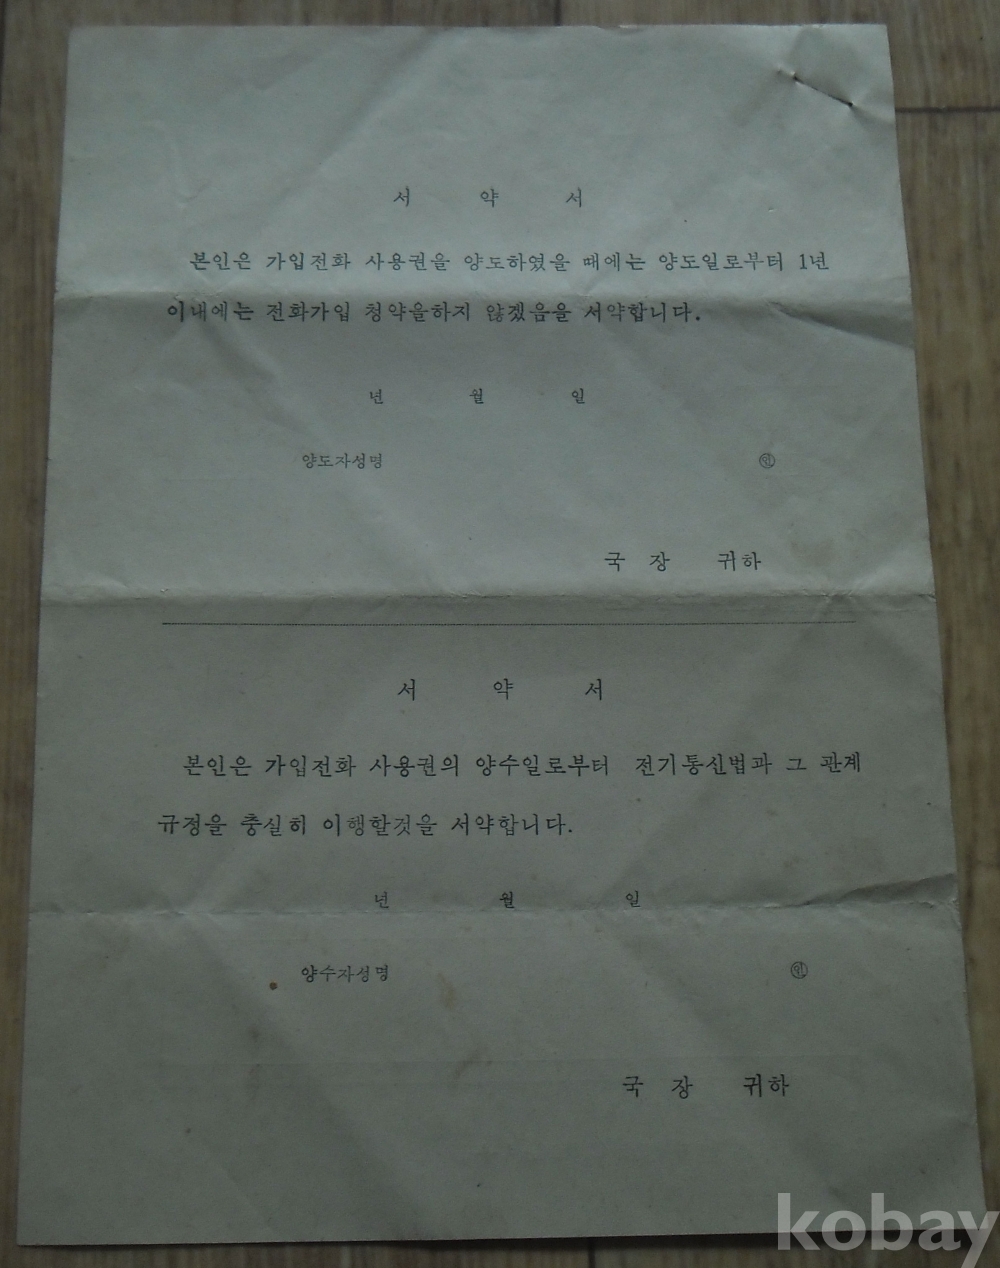 서 약 서
본인은 가입전화 사용권을 양도하였을 때에는 양도일로부터 1년
이내에는 전화가입 청약을하지 않겠음을 서약합니다.
년 월 일
양도자성명 ㊞
국 장 귀하
서 약 서
본인은 가입전화 사용권의 양수일로부터 전기통신법과 그 관계
규정을 충실히 이행할것을 서약합니다.
년 월 일
양수자성명 ㊞
국 장 귀하
kobay